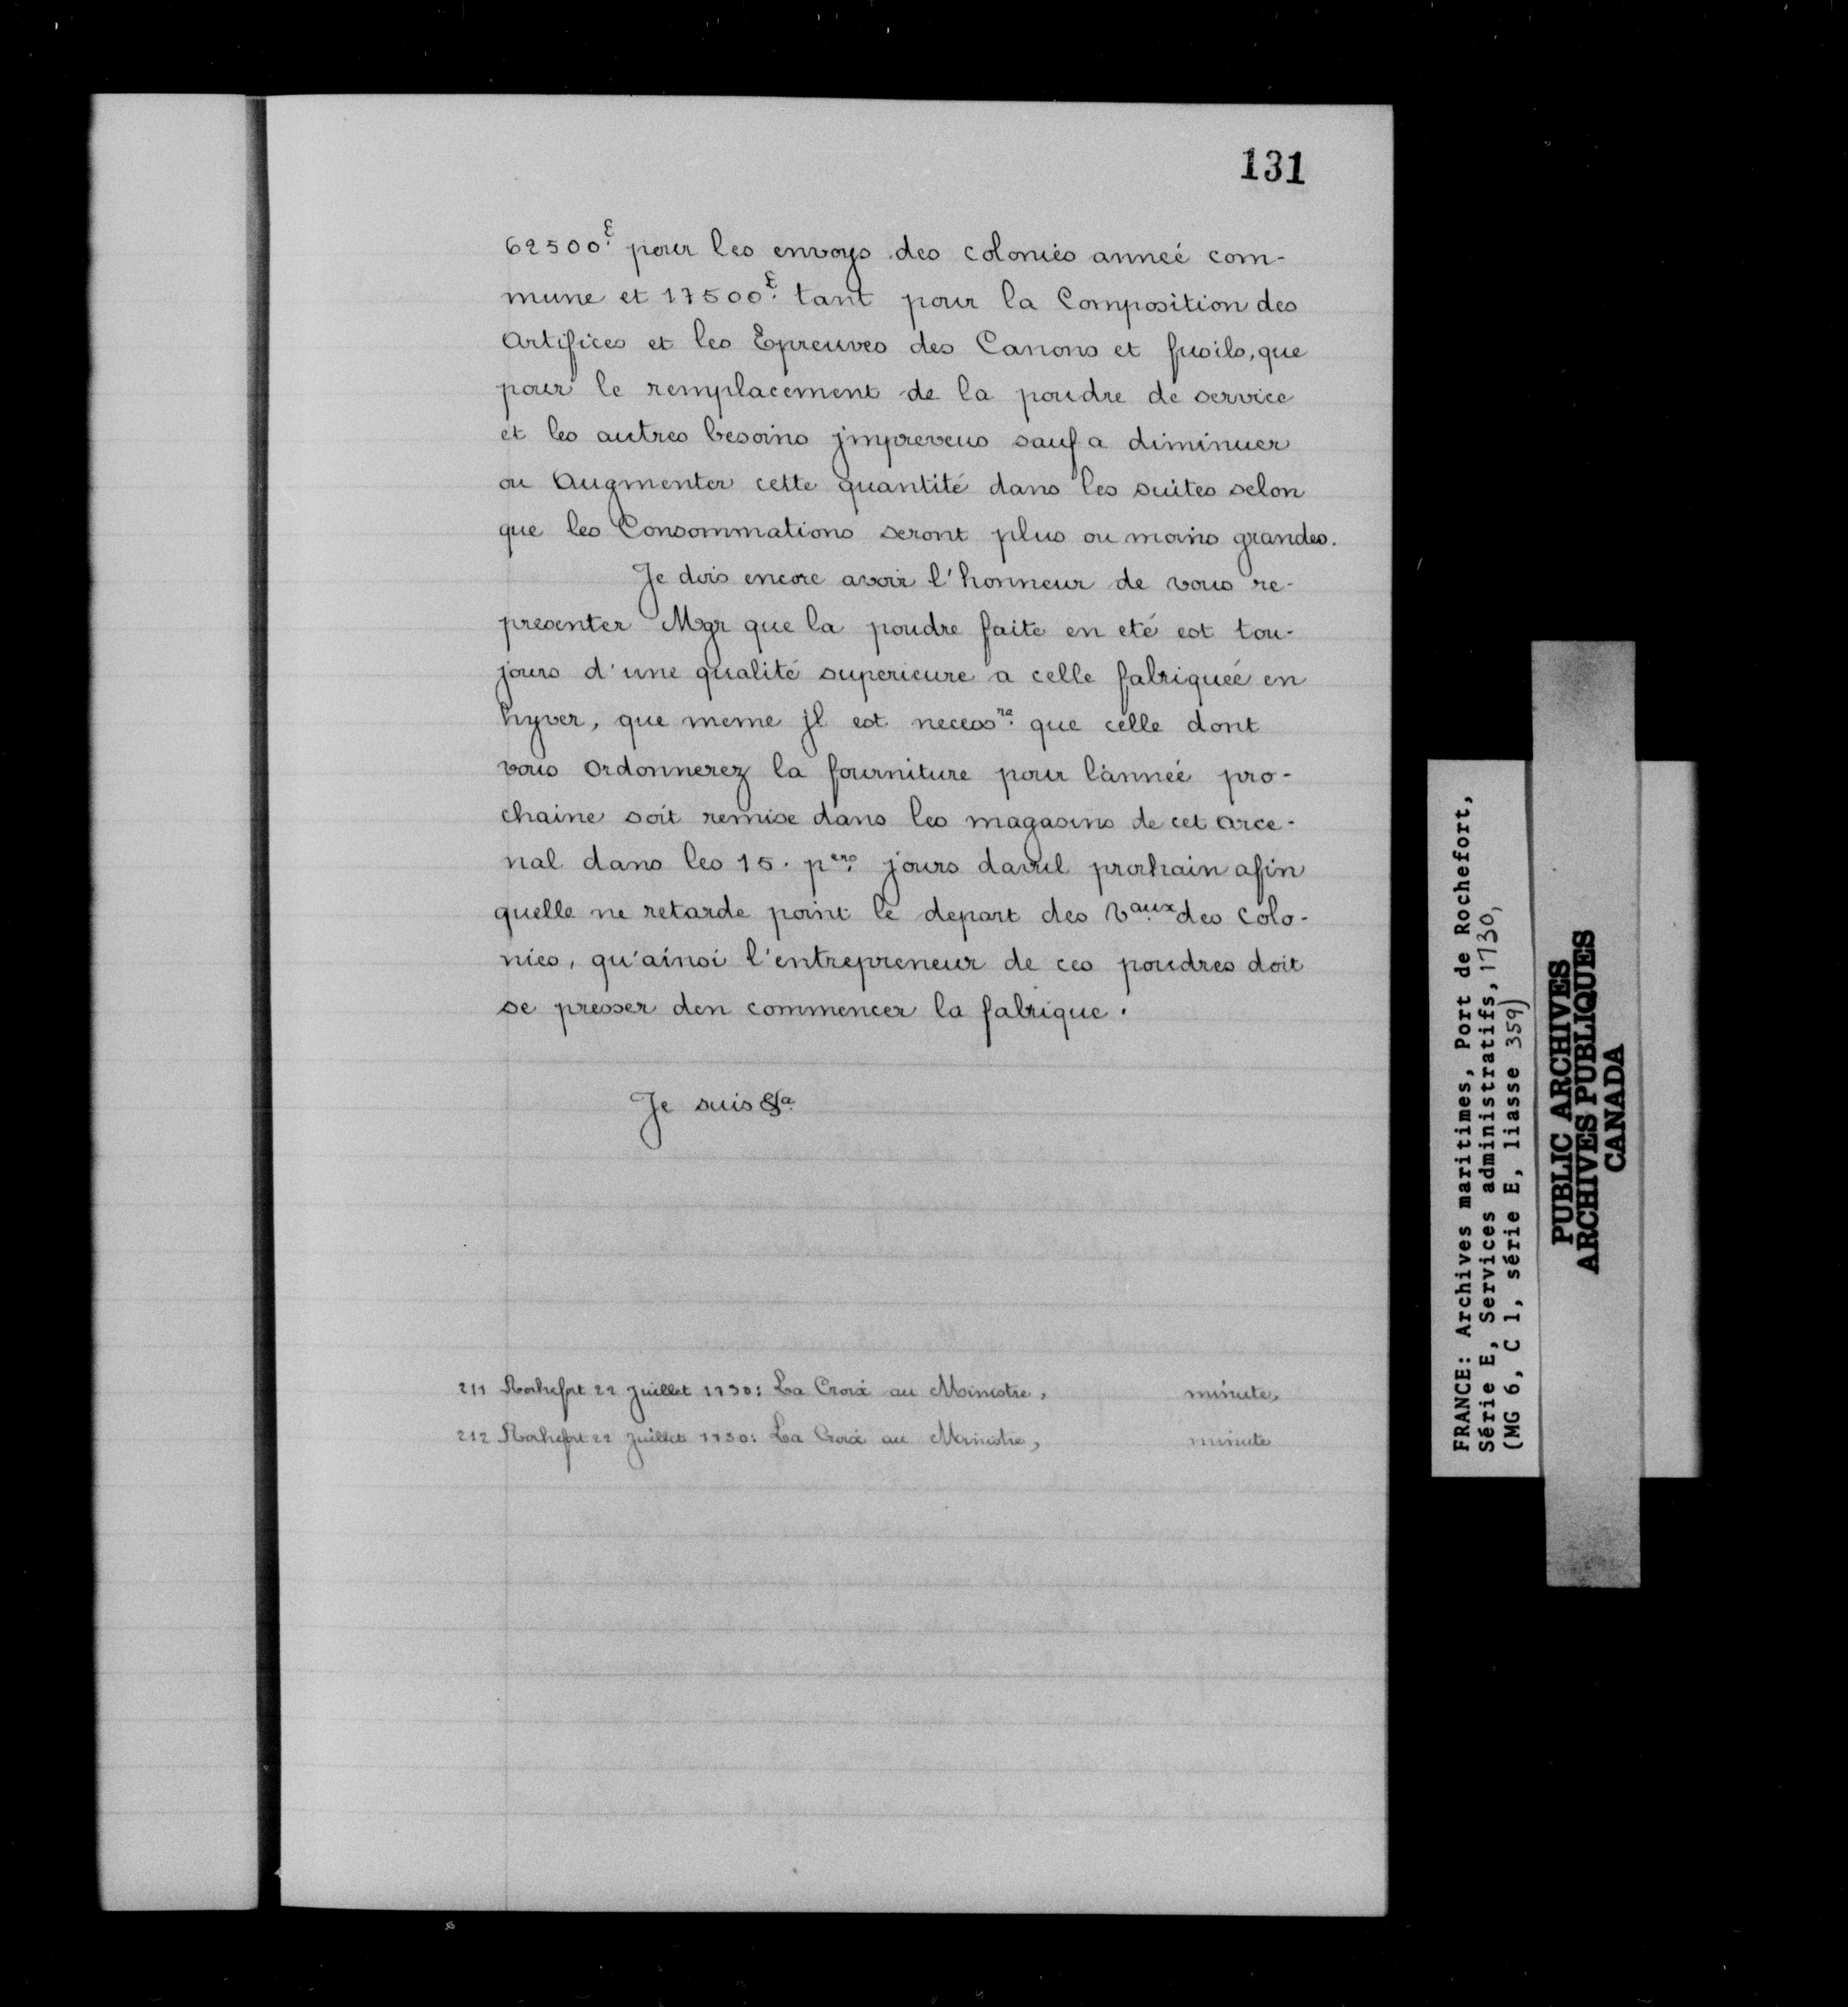 131
62500£ pour les envoys des colonies anneé com-
mune et 17500£ tant pour la Composition des
Artifices et les Epreuves des Canons et fusils, que
pour le remplacement de la poudre de service
et les autres besoins jmpreveus sauf a diminuer
ou Augmenter cette quantité dans les suites selon
que les Consommations seront plus ou moins grandes.
Je dois encore avoir l'honneur de vous re-
presenter Mgr que la poudre faite en eté est tou-
jours d'une qualité superieure a celle fabriqueé en
hyver, que meme jl est necessre que celle dont
vous Ordonnerez la fourniture pour l'anneé pro-
chaine soit remise dans les magasins de cet arce-
nal dans les 15. pers jours davril prochain afin
quelle ne retarde point le depart des Vaux des colo-
nies, qu'ainsi l'entrepreneur de ces poudres doit
se presser den commencer la fabrique.
Je suis &a
211 Rochefort 22 Juillet 1730: La Croix au Ministre, minute,
212 Rochefort 22 Juillet 1730: La Croix au Ministre, minute
FRANCE: Archives maritimes, Port de Rochefort,
Série E, Services administratifs, 1730,
(MG 6, C 1, série E, liasse 359)
PUBLIC ARCHIVES
ARCHIVES PUBLIQUES
CANADA